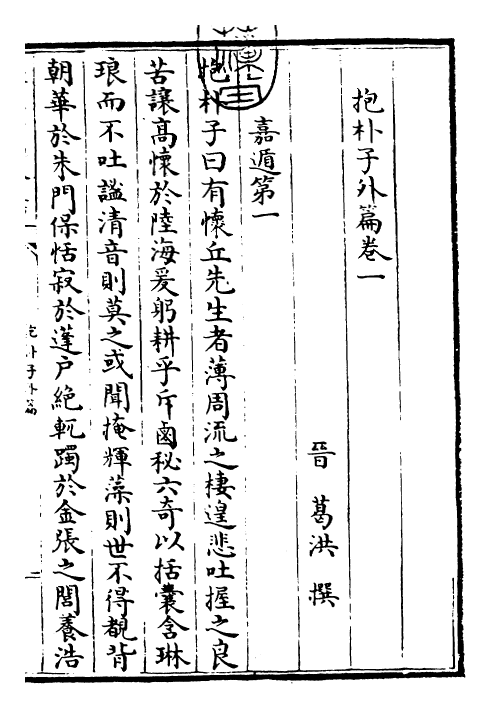 抱朴子外篇卷一
晋 葛洪 撰
嘉遁第一
抱朴子曰有懷丘先生者薄周流之棲遑悲吐握之良
苦讓髙懷於陸海爰躬耕乎斥鹵秘六奇以括囊含琳
琅而不吐謐清音則莫之或聞掩輝藻則世不得覩背
朝華於朱門保恬寂於蓬户絶軏躅於金張之閭養浩